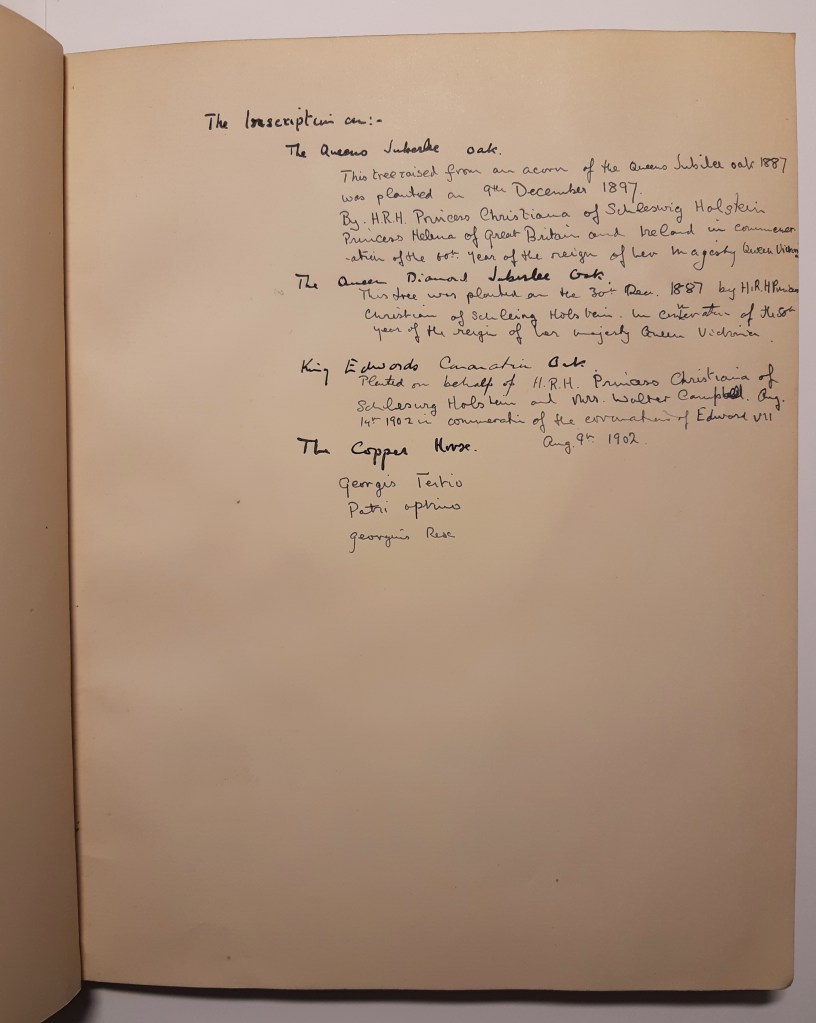 The Inscription on:-
The Queens Jubilee oak.
This tree raised from an acorn of the Queens Jubilee oak 1887
was planted on 9th December 1897.
By. H.R.H. Princess Christiana of Schleswig Holstein
Princess Helena of Great Britain and Ireland in commemor
-ation of the 60th year of the reign of her Magesty Queen Victoria
The Queen Diamond Jubilee Oak.
This tree was planted on the 30th Dec. 1887 by H.R.H Princess
Christian of Holstein. In of the 50th
year of the reign of her majesty Queen Victoria.
King Edwards Coronation Oak
Planted on behalf of H.R.H. Princess Christiana of
Schleswig Holstein and Mrs. Walter Campbell. Aug.
14th 1902 in of the coronation of Edward VII
Aug. 9th 1902.
The Copper Horse.
Georgio Tertio
Patri optimo
Georgius Rex